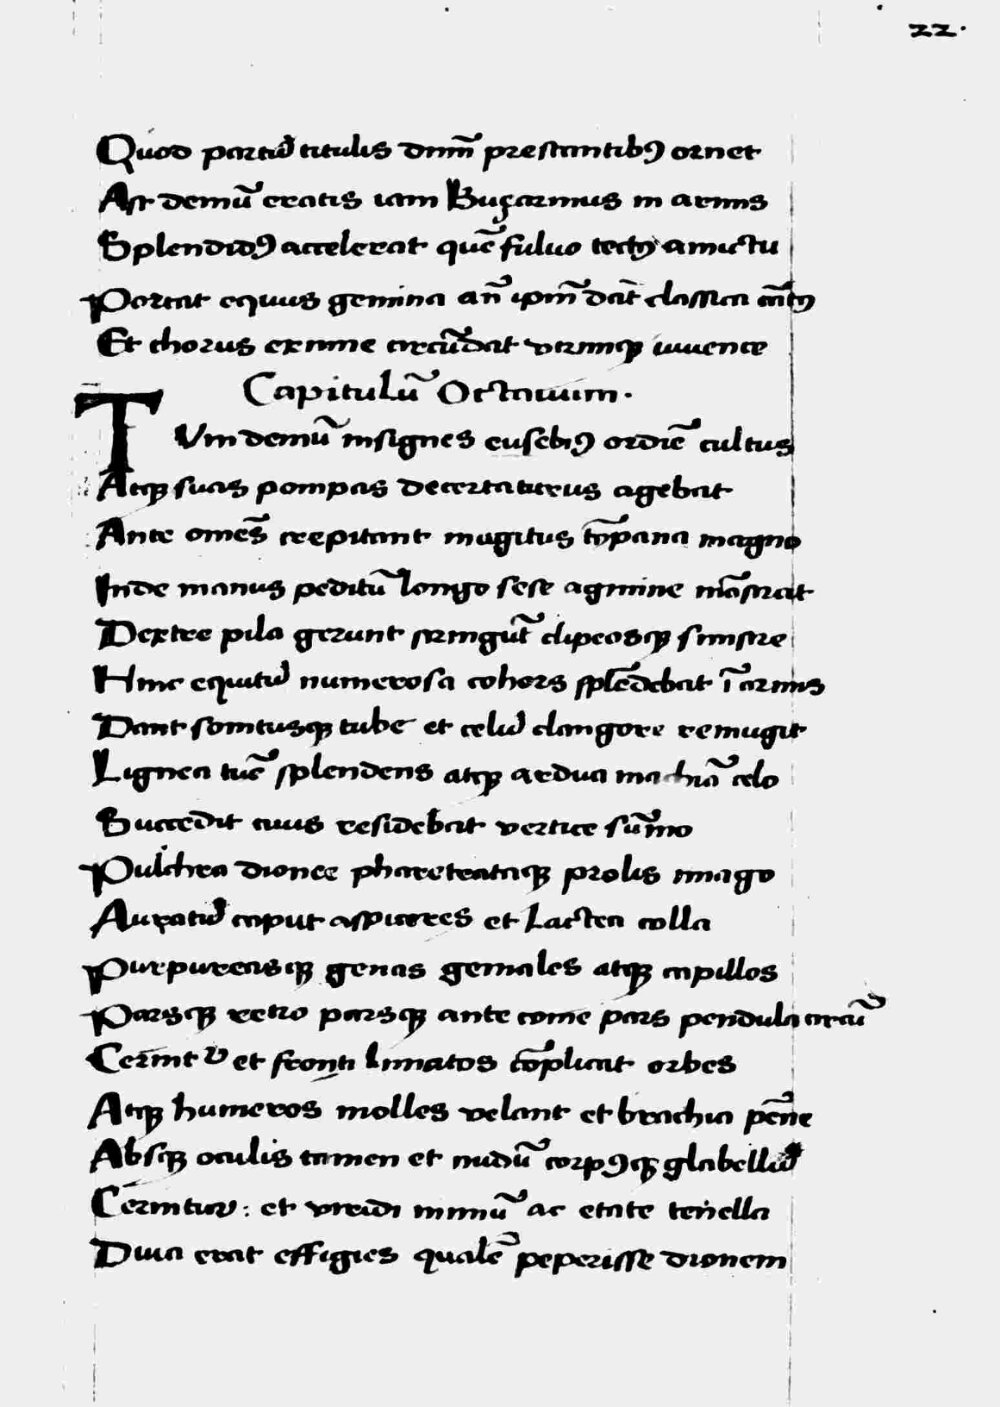 22.
Quod partũ titulis dnm̃ prestantibꝯ ornet
Ast demũ cratis iam Bugarinus in armis
Splendidꝯ accelerat quẽ fuluo tectꝯ amictu
Portat equus gemina añ ipm̃ dãt classica cãtꝯ
Et chorus eximie circũdat utrimqꝫ iuuente
Capitulũ Octauum.
TVm demũ insignes eusebiꝯ ordiẽ cultus
Atqꝫ suas pompas decertaturus agebat
Ante omẽs crepitant mugitus tỹpana magno
Inde manus peditũ longo sese agmine mõstrat
Dextre pila gerunt stringũt clipeosqꝫ sinistre
Hinc equitũ numerosa cohors splẽdebat ĩ armis
Dant sonitusqꝫ tube et celũ clangore remugit
Lignea tũc splendens atqꝫ ardua machiã celo
Succedit cuius residebat vertice sũmo
Pulchra dionee pharetrataqꝫ prolis imago
Auratũ caput aspiceres et Lactea colla
Purpureasqꝫ genas geniales atqꝫ capillos
Parsqꝫ retro parsqꝫ ante come pars pendula circũ
Cernit̃ᷣ et fronti Innatos cõplicat orbes
Atqꝫ humeros molles velant et brachia pẽne
Absqꝫ oculis tamen et nudũ corpꝯqꝫ glabellũ
Cernitur: et viridi nimiũ ac etate tenella
Diua erat effigies qualẽ peperisse dionem